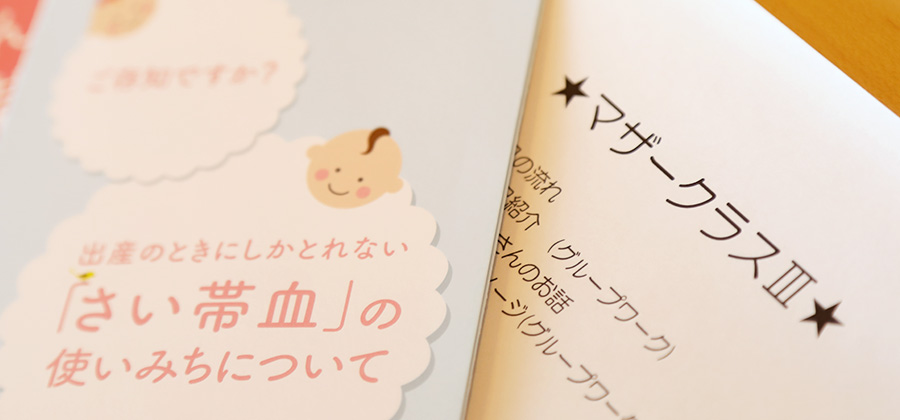 ご存知ですか？
出産のときにしかとれない
「さい帯血」の
使いみちについて
★マザークラスⅢ★
の流れ
紹介 (グループワーク)
さんのお話
ージ(グループワーク